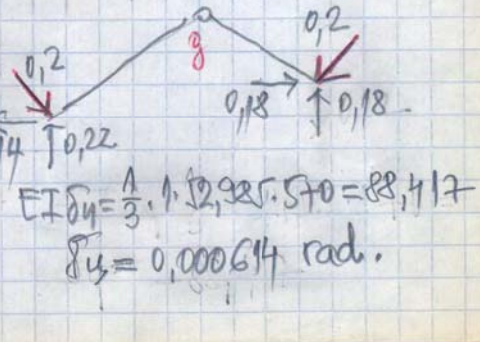 0,2
0,2
g
0,18
0,18
0,22
EIδц = 1/3 · 1 · 52,985 · 570 = 88,417
δц = 0,000614 rad.